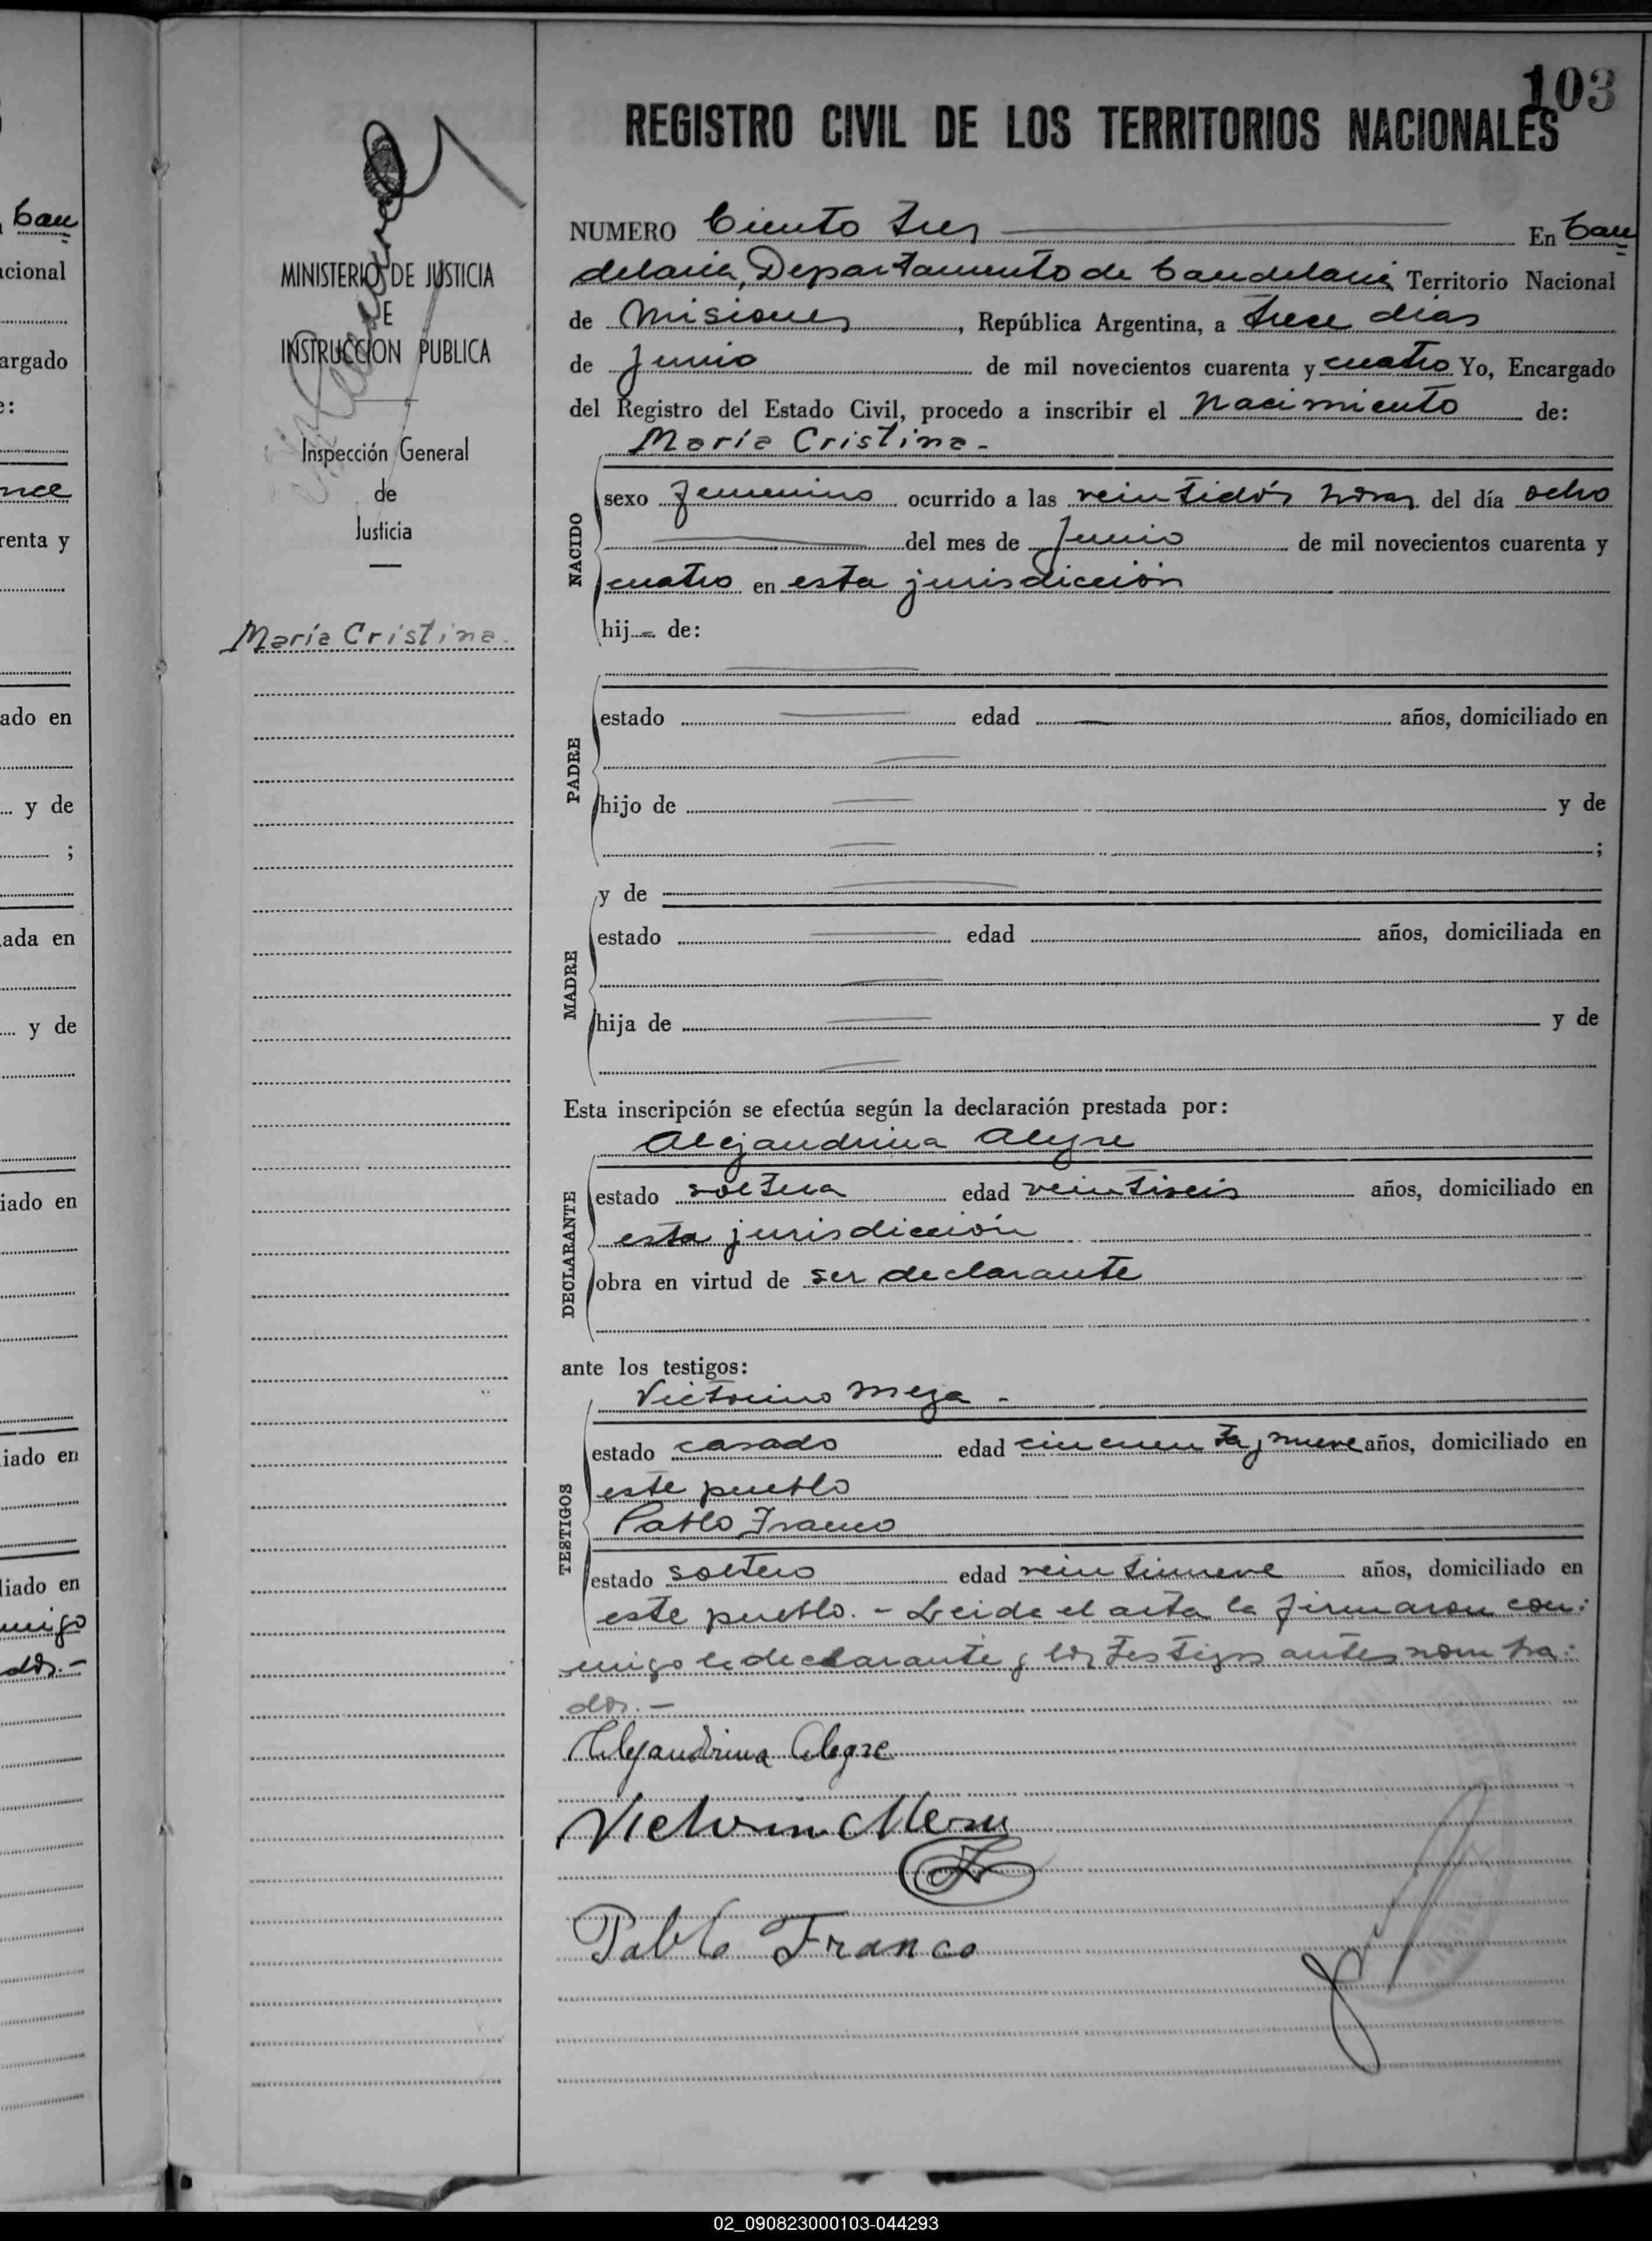 103
REGISTRO CIVIL DE LOS TERRITORIOS NACIONALES
NUMERO Ciento tres En Can
delaria, Departamento de Candelaria Territorio Nacional
de Misiones, República Argentina, a trece días
de Junio de mil novecientos cuarenta y cuatro Yo, Encargado
del Registro del Estado Civil, procedo a inscribir el nacimiento de:
María Cristina.-
NACIDO
sexo femenino ocurrido a las veintidós horas del día ocho
del mes de Junio de mil novecientos cuarenta y
cuatro en esta jurisdicción
hij-- de:
PADRE
estado edad años, domiciliado en
hijo de y de
;
MADRE
y de
estado edad años, domiciliada en
hija de y de
Esta inscripción se efectúa según la declaración prestada por:
Alejandrina Alegre
DECLARANTE
estado soltera edad veintiseis años, domiciliado en
esta jurisdicción
obra en virtud de ser declarante
ante los testigos:
Victorino Meza -
TESTIGOS
estado casado edad cincuenta y nueve años, domiciliado en
este pueblo
Pablo Franco
estado soltero edad veintinueve años, domiciliado en
este pueblo. - Leida el acta la firmaron con:
migo la declarante y los testigos antes nombra:
dos.-
Alejandrina Alegre
Victorin Meza
Pablo Franco
MINISTERIO DE JUSTICIA
E
INSTRUCCION PUBLICA
Inspección General
de
Justicia
María Cristina.
Can
acional
argado
e:
nce
renta y
ado en
y de
;
ada en
y de
iado en
iado en
liado en
migo
dos.-
02_090823000103-044293